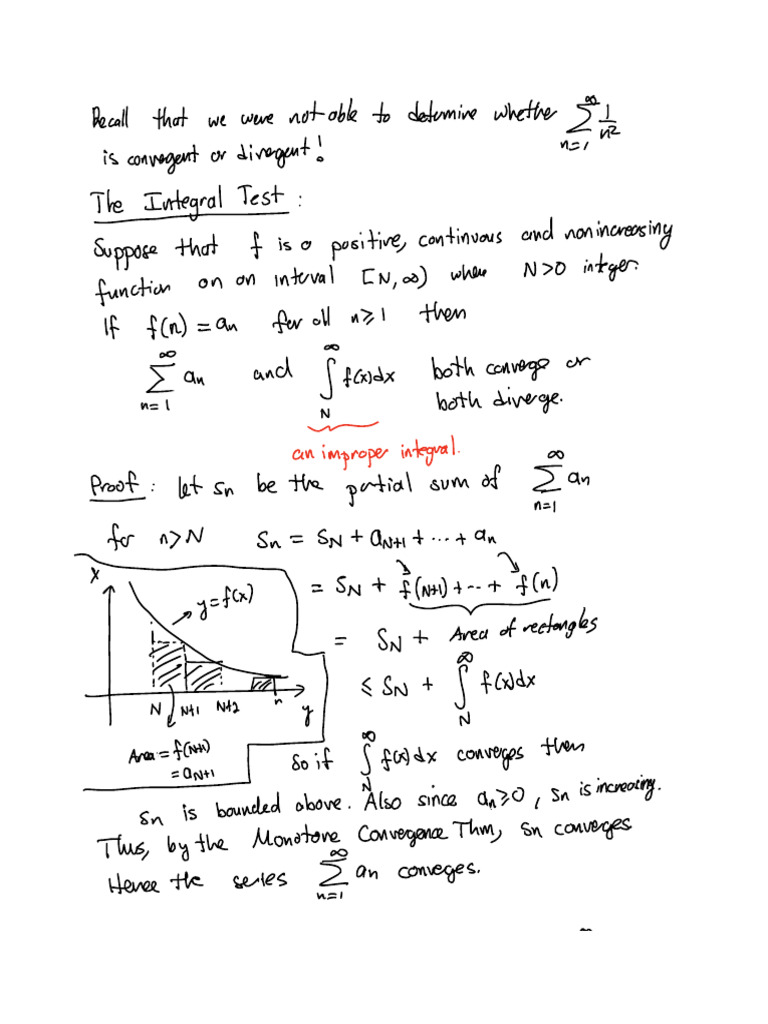 Recall that we were not able to determine whether ∑_{n=1}^{∞} 1/n²
is convergent or divergent!
The Integral Test:
Suppose that f is a positive, continuous and nonincreasing
function on an interval [N, ∞) where N>0 integer.
If f(n) = aₙ for all n⩾1 then
∑_{n=1}^{∞} aₙ and ∫_{N}^{∞} f(x)dx both converge or
both diverge.
an improper integral.
Proof: let sₙ be the partial sum of ∑_{n=1}^{∞} aₙ
for n>N Sₙ = S_N + a_{N+1} + ... + aₙ
= S_N + f(N+1) + ... + f(n)
= S_N + Area of rectangles
⩽ S_N + ∫_{N}^{∞} f(x)dx
x
y=f(x)
N N+1 N+2 n
y
Area = f(N+1)
= a_{N+1}
So if ∫_{N}^{∞} f(x)dx converges then
Sₙ is bounded above. Also since aₙ⩾0, Sₙ is increasing.
Thus, by the Monotone Convergence Thm, Sₙ converges
Hence the series ∑_{n=1}^{∞} aₙ converges.